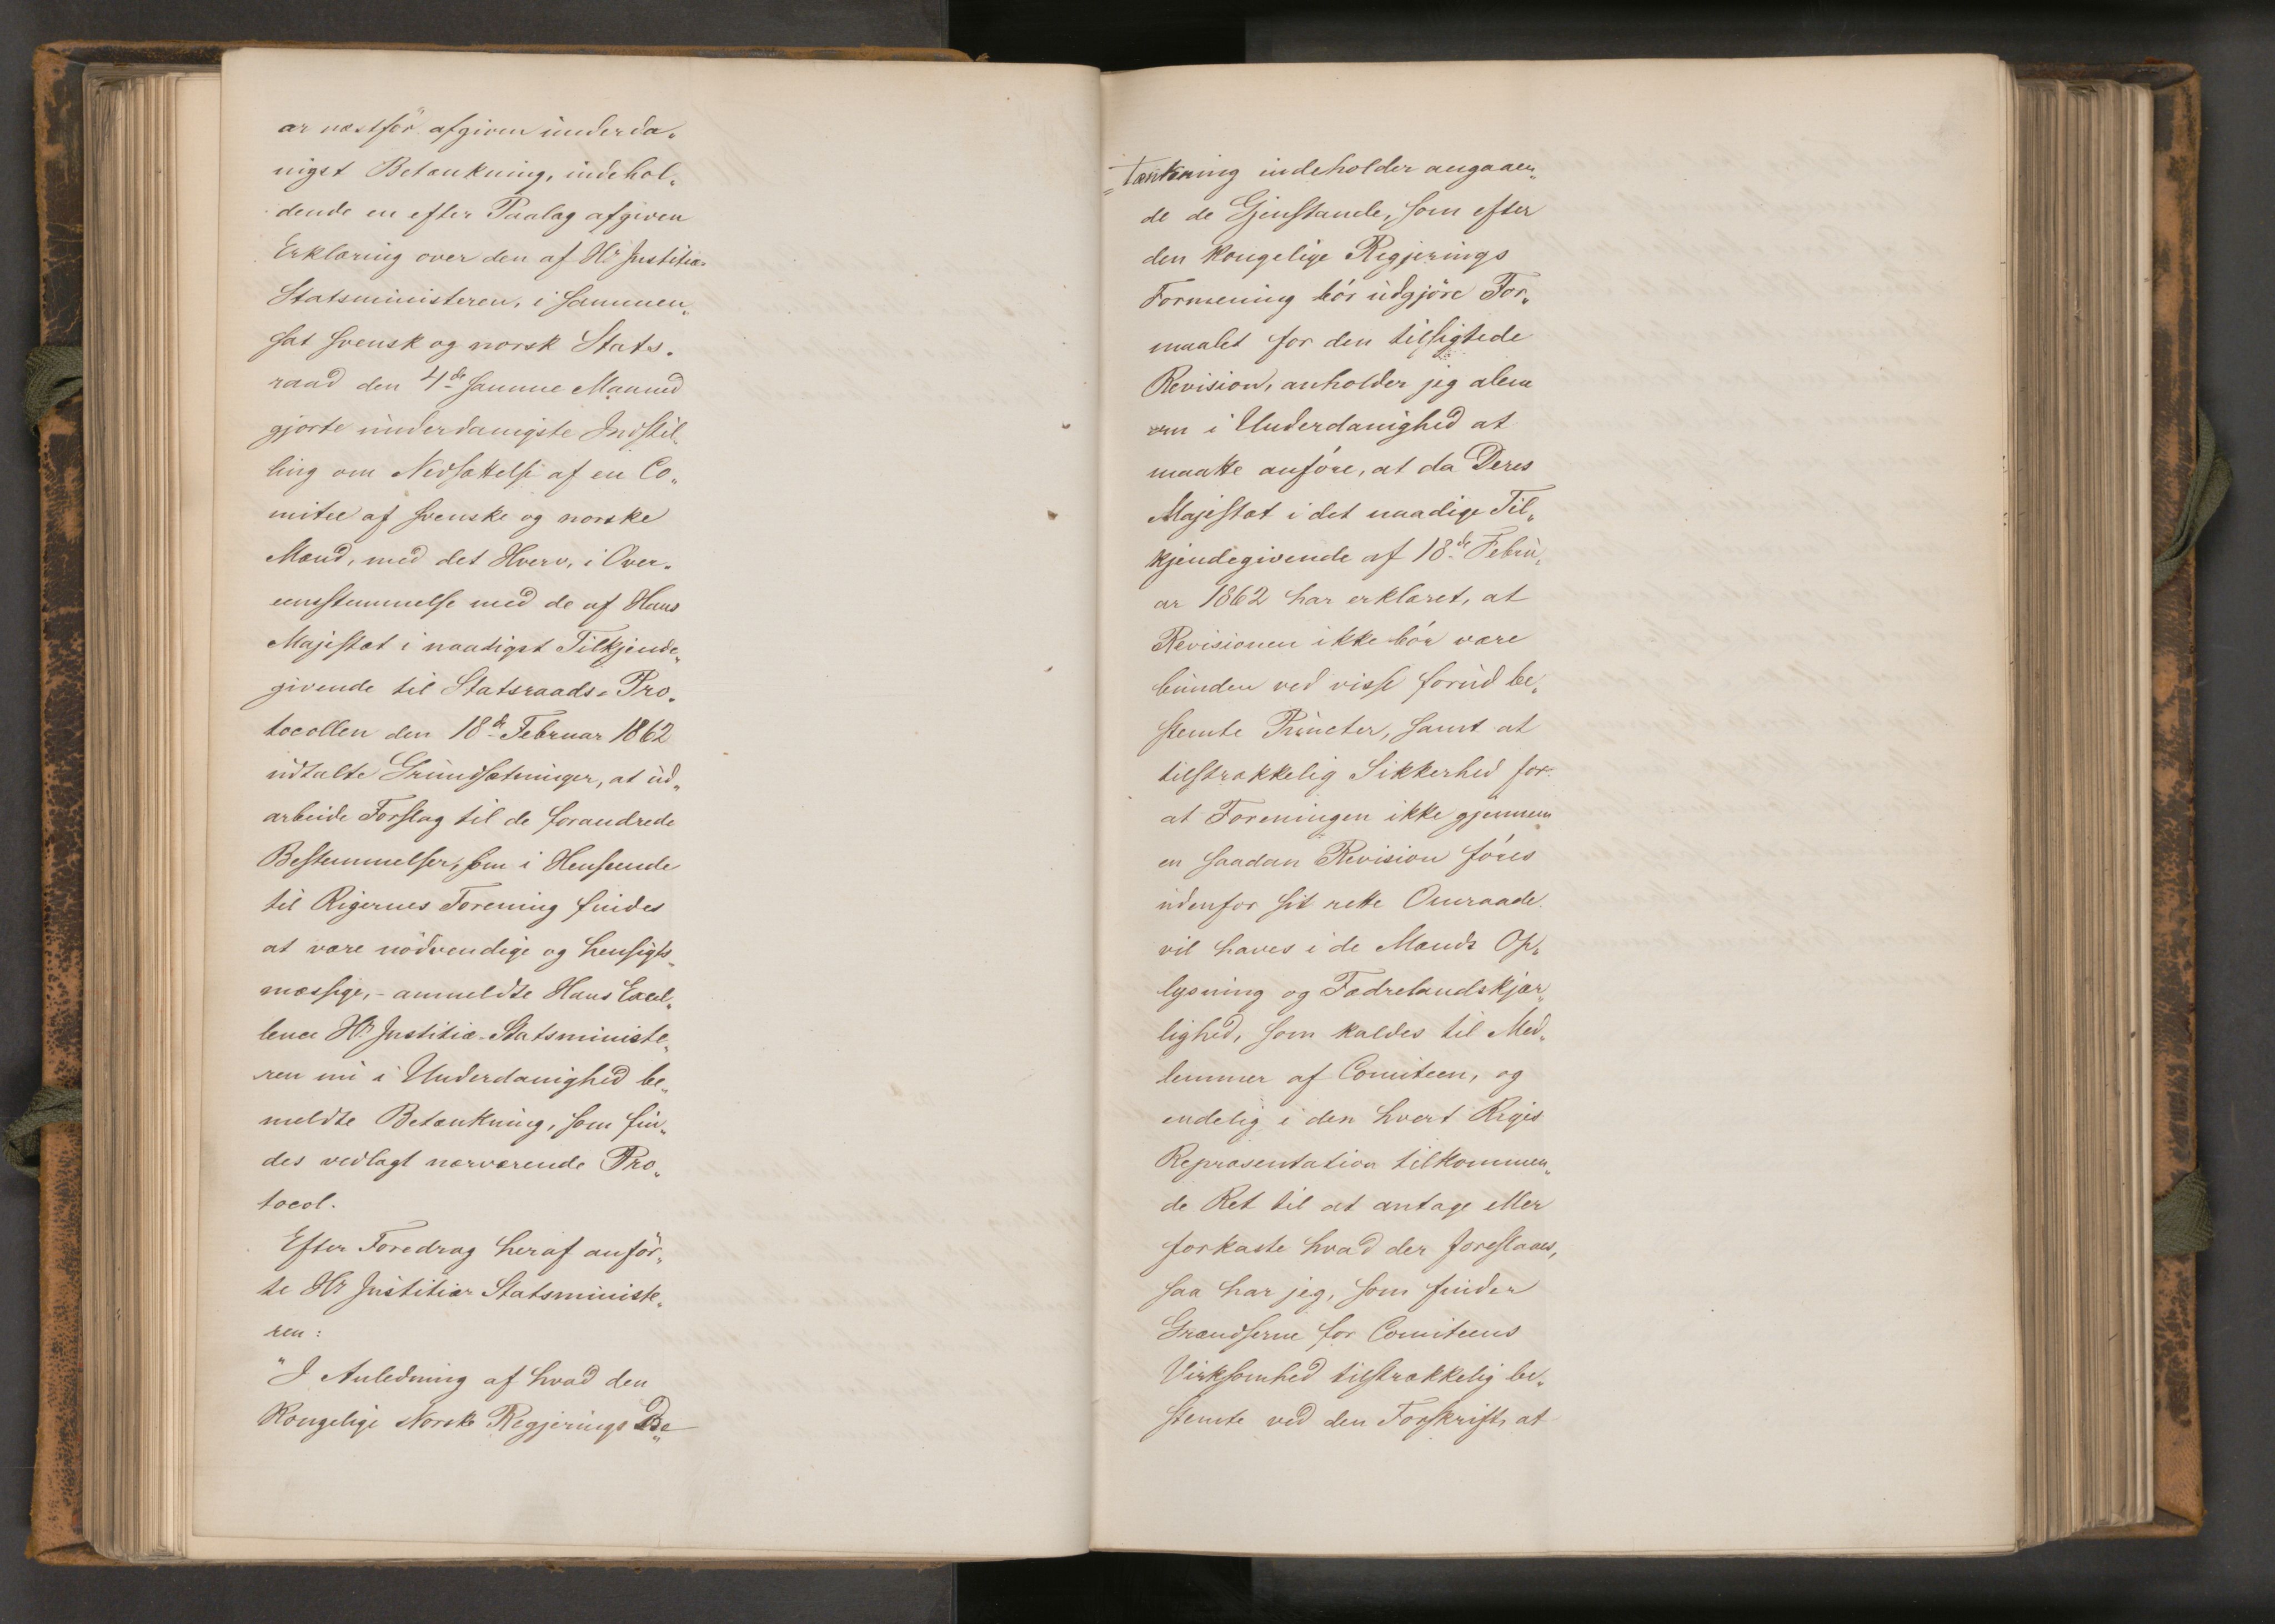 ar næstför afgiven underda„
nigst Betænkning, indehol„
dende en efter Paalæg afgiven
Erklæring over den af Hr Justitiæ
Statsministeren, i sammen„
sat svensk og norsk Stats„
raad den 4de samme Maaned
gjorte underdanigste Indstil„
ling om Nedsættelse af en Co„
mitee af svenske og norske
Mænd, med det Hverv, i Over„
eensstemmelse med de af Hans
Majestæt i naadigst Tilkjende„
givende til Statsraads-Pro„
tocollen den 18de Februar 1862
udtalte Grundsætninger, at ud„
arbeide Forslag til de forandrede
Bestemmelser, som i Henseende
til Rigernes Forening findes
at være nödvendige og hensigts„
mæssige, - anmeldte Hans Excel„
lence Hr Justitiæ-Statsministe„
ren nu i Underdanighed be„
meldte Betænkning, som fin„
des vedlagt nærværende Pro„
tocol.
Efter Foredrag heraf anför„
te Hr Justitiæ Statsministe„
ren:
"I Anledning af hvad den
Kongelige Norske Regjerings Be„
tænkning indeholder angaaen„
de de Gjenstande, som efter
den kongelige Regjerings
Formening bör udgjöre For„
maalet for den tilsigtede
Revision, anholder jeg alene
om i Underdanighed at
maatte anföre, at da Deres
Majestæt i det naadige Til„
kjendegivende af 18de Febru„
ar 1862 har erklæret, at
Revisionen ikke bör være
bunden ved visse forud be„
stemte Puncter, samt at
tilstrækkelig Sikkerhed for
at Foreningen ikke gjennem
en saadan Revision föres
udenfor sit rette Omraade
vil haves i de Mænds Op„
lysning og Fædrelandskjær„
lighed, som kaldes til Med„
lemmer af Comiteen, og
endelig i den hvert Riges
Repræsentation tilkommen„
de Ret til at antage eller
forkaste hvad der foreslaaes,
saa har jeg, som finder
Grændserne for Comiteens
Virksomhed tilstrækkelig be„
stemte ved den Forskrift, at